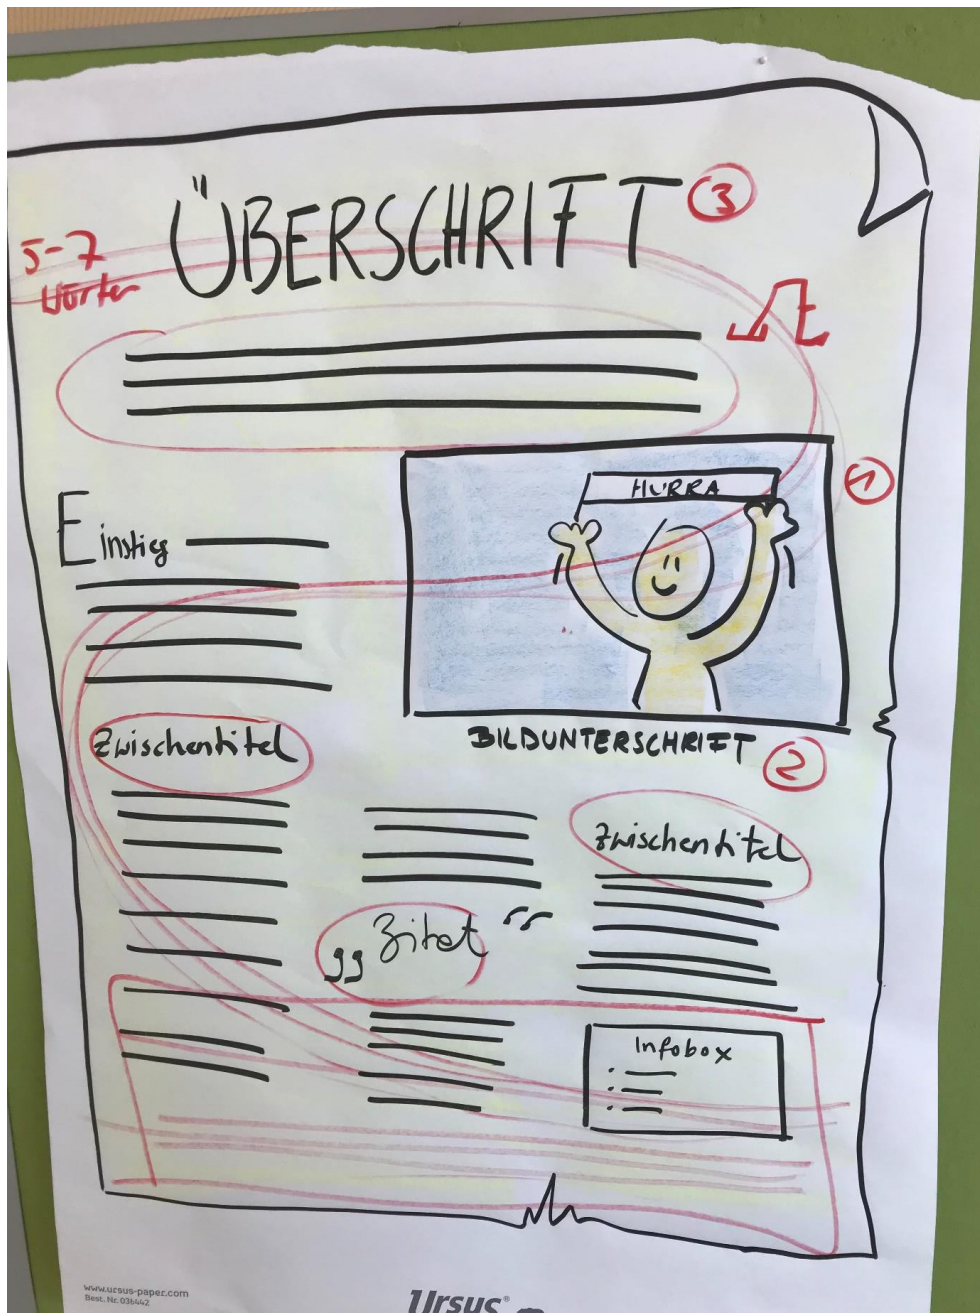 ÜBERSCHRIFT
3
5-7
Wörter
HURRA
1
Einstieg
BILDUNTERSCHRIFT
2
Zwischentitel
Zwischentitel
„Zitat“
Infobox
www.ursus-paper.com
Best. Nr. 036442
Ursus®